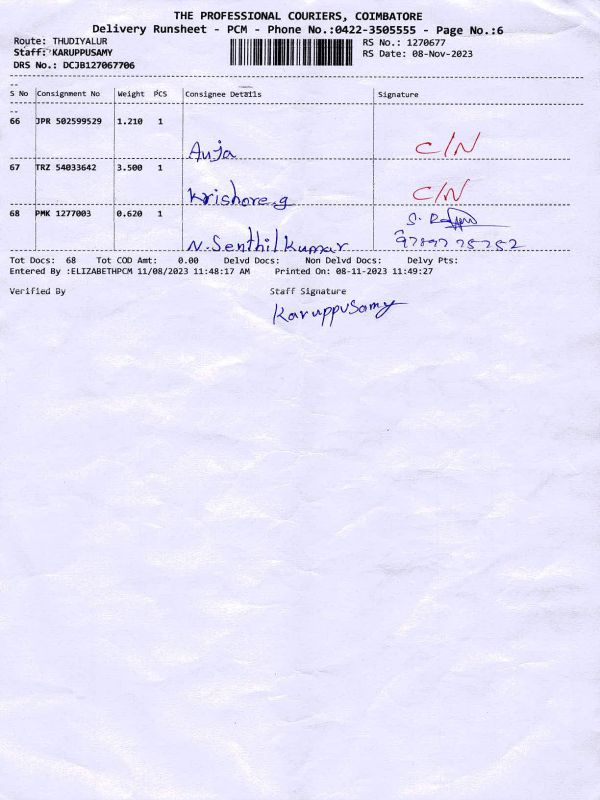 THE PROFESSIONAL COURIERS, COIMBATORE
Delivery Runsheet - PCM - Phone No.:0422-3505555 - Page No.:6
Route: THUDIYALUR
RS No.: 1270677
Staff: KARUPPUSAMY
RS Date: 08-Nov-2023
DRS No.: DCJB127067706
S No Consignment No Weight PCS Consignee Details Signature
66 JPR 502599529 1.210 1
Anja C/N
67 TRZ 54033642 3.500 1
Krishore.g C/N
68 PMK 1277003 0.620 1
N.Senthil Kumar
Tot Docs: 68 Tot COD Amt: 0.00 Delvd Docs: Non Delvd Docs: Delvy Pts:
Entered By :ELIZABETHPCM 11/08/2023 11:48:17 AM Printed On: 08-11-2023 11:49:27
Verified By Staff Signature
KaruppuSamy